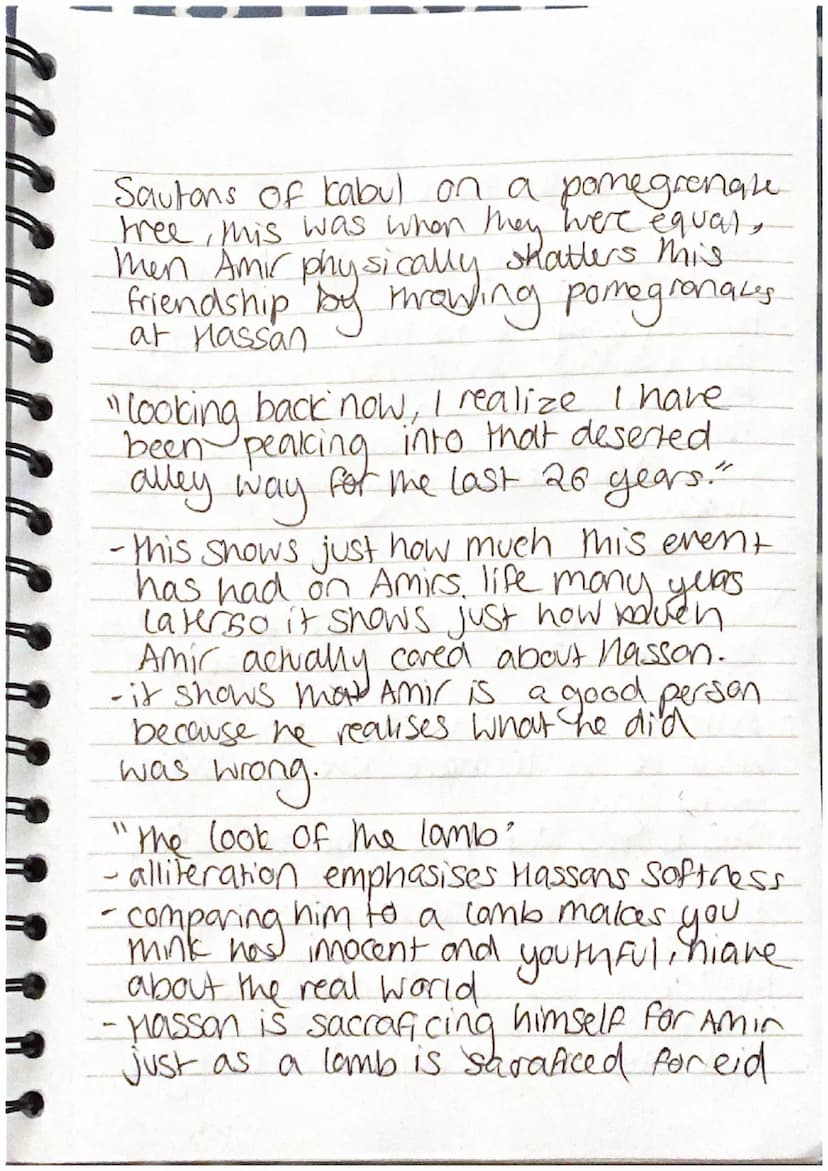 Saultans of kabul on a pomegrenate
tree, this was when they were equal,
then Amir physically shatters this
friendship by throwing pomegranates
at Hassan
"looking back now, I realize I have
been peaking into that deserted
alley way for the last 26 years."
- this shows just how much this event
has had on Amirs life many years
later so it shows just how much
Amir actually cared about Hassan.
- it shows that Amir is a good person
because he realises what he did
was wrong.
"the look of the lamb"
- alliteration emphasises Hassans softness
- comparing him to a lamb makes you
think hes innocent and youthful, niave
about the real world
- Hassan is sacraficing himself for Amir
just as a lamb is sacraficed for eid